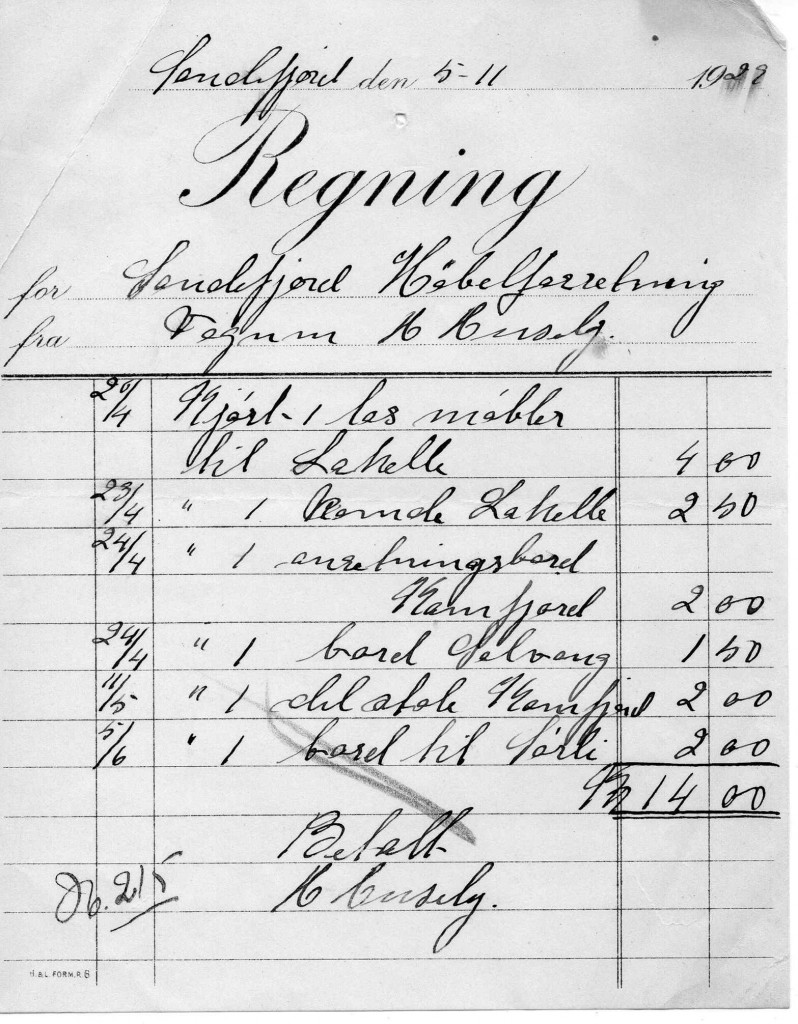 Sandefjord den 5-11 1922
Regning
for Sandefjord Möbelforretning
fra Vegnm H Huseby.
20/4 Kjört - 1 las möbler
til Lakelle 4 00
23/4 " 1 Komde Lakelle 2 50
24/4 " 1 anretningsbord
Kamfjord 2 00
24/4 " 1 bord Solvang 1 50
11/5 " 1 del stole Kamfjord 2 00
5/6 " 1 bord til Sörli 2 00
Kr 14 00
Betalt
H Huseby.
215
H. & L. FORM. R. 8